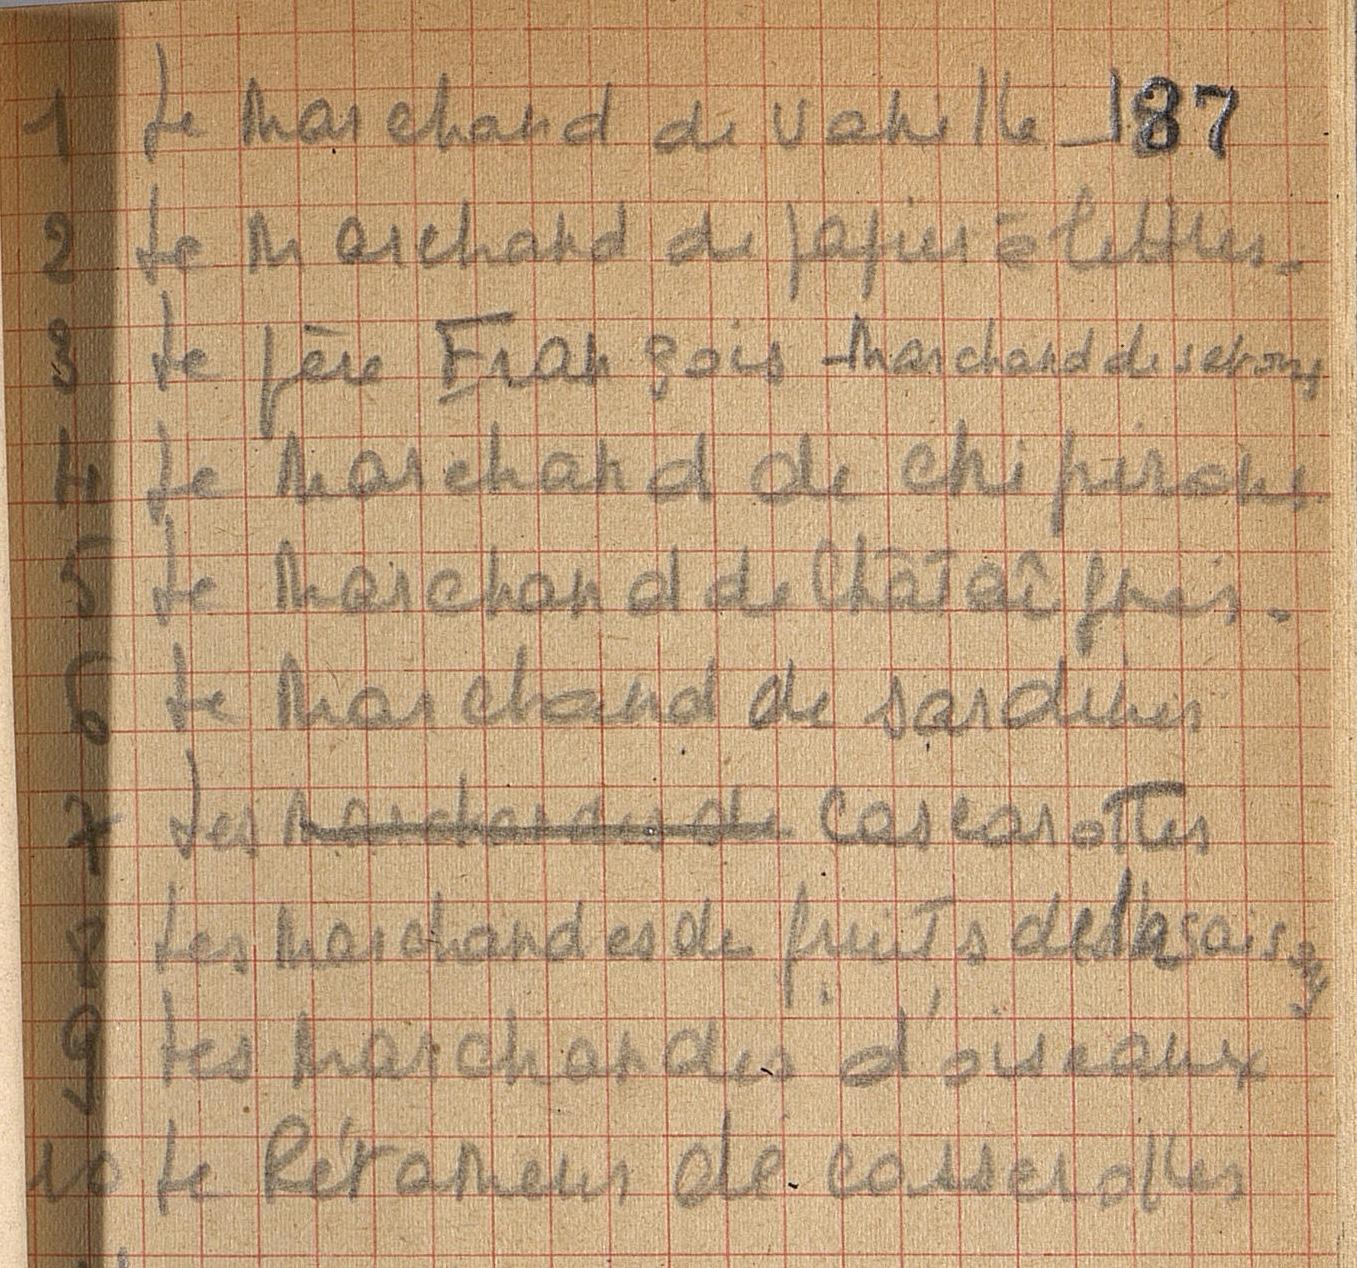 1 Le Marchand de Vanille 187
2 Le Marchand de papier à lettres.
3 Le père François - Marchand de savons
4 Le Marchand de chipirons.
5 Le Marchand de Châtaîgnes.
6 Le Marchand de sardines
7 Les Marchandes de Cascarottes
8 Les Marchandes de fruits de la saison
9 Les Marchandes d'oiseaux
10 Le Rétameur de casserolles